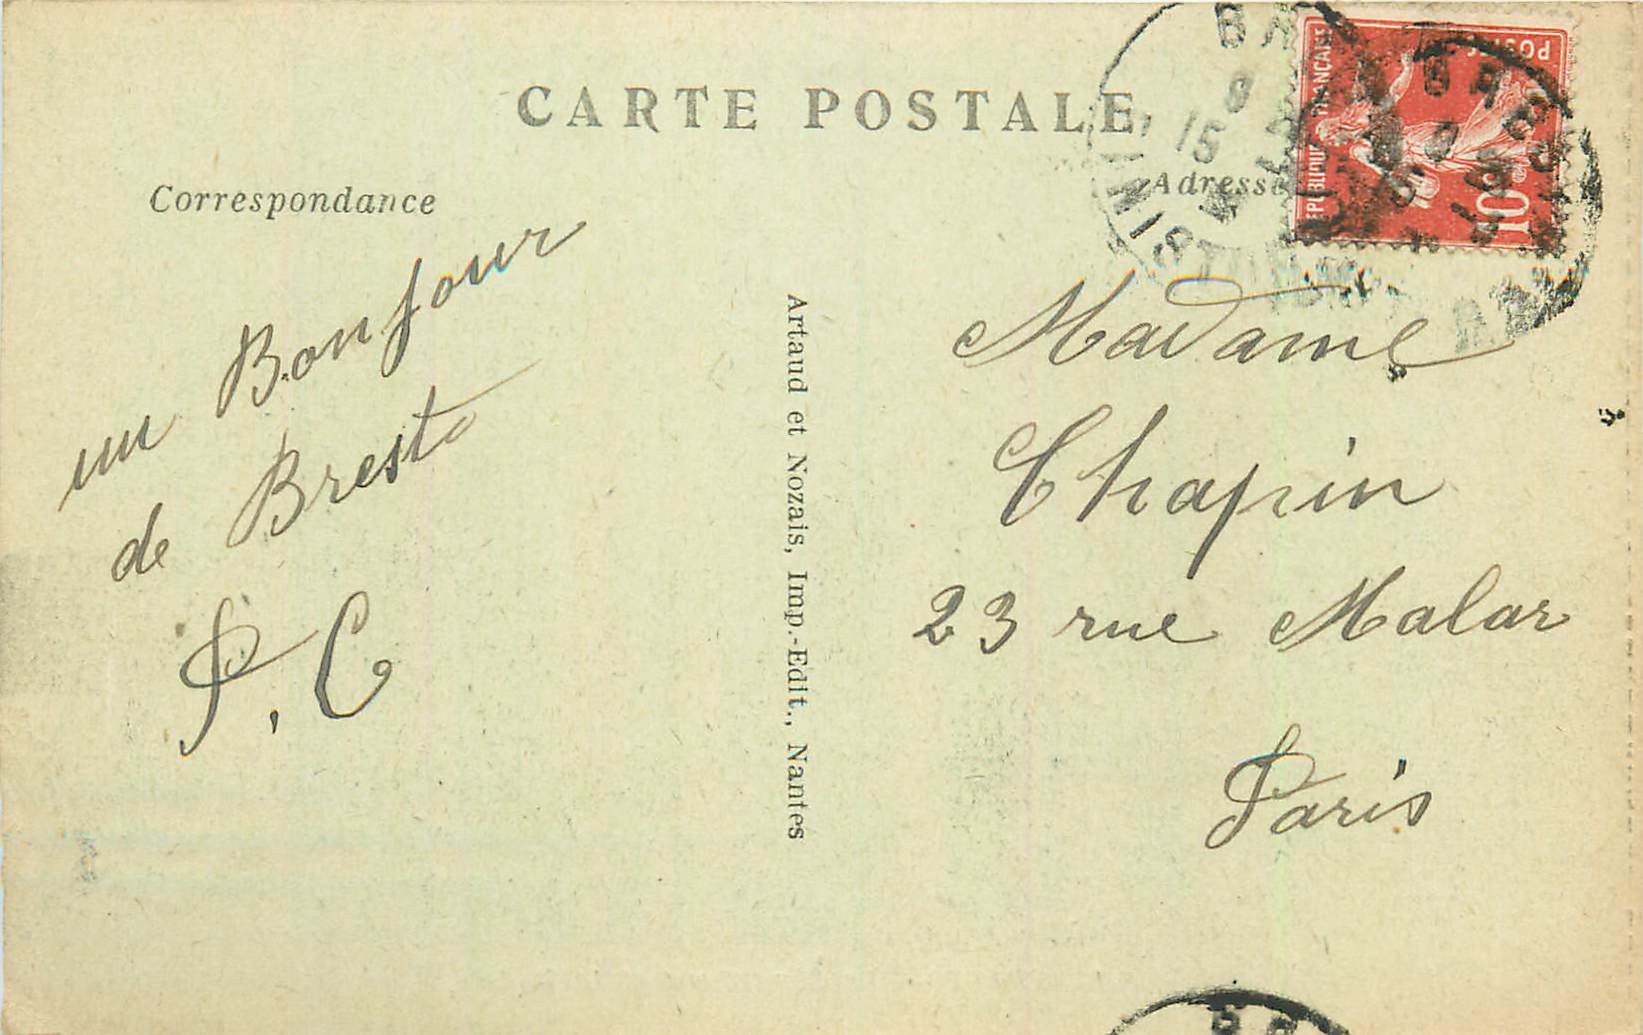 CARTE POSTALE
Correspondance
Adresse
RÉPUBLIQUE FRANÇAISE
POSTES
10c
un Bonjour
de Brest
P. C
Artaud et Nozais, Imp.-Edit., Nantes
Madame
Chapin
23 rue Malar
Paris